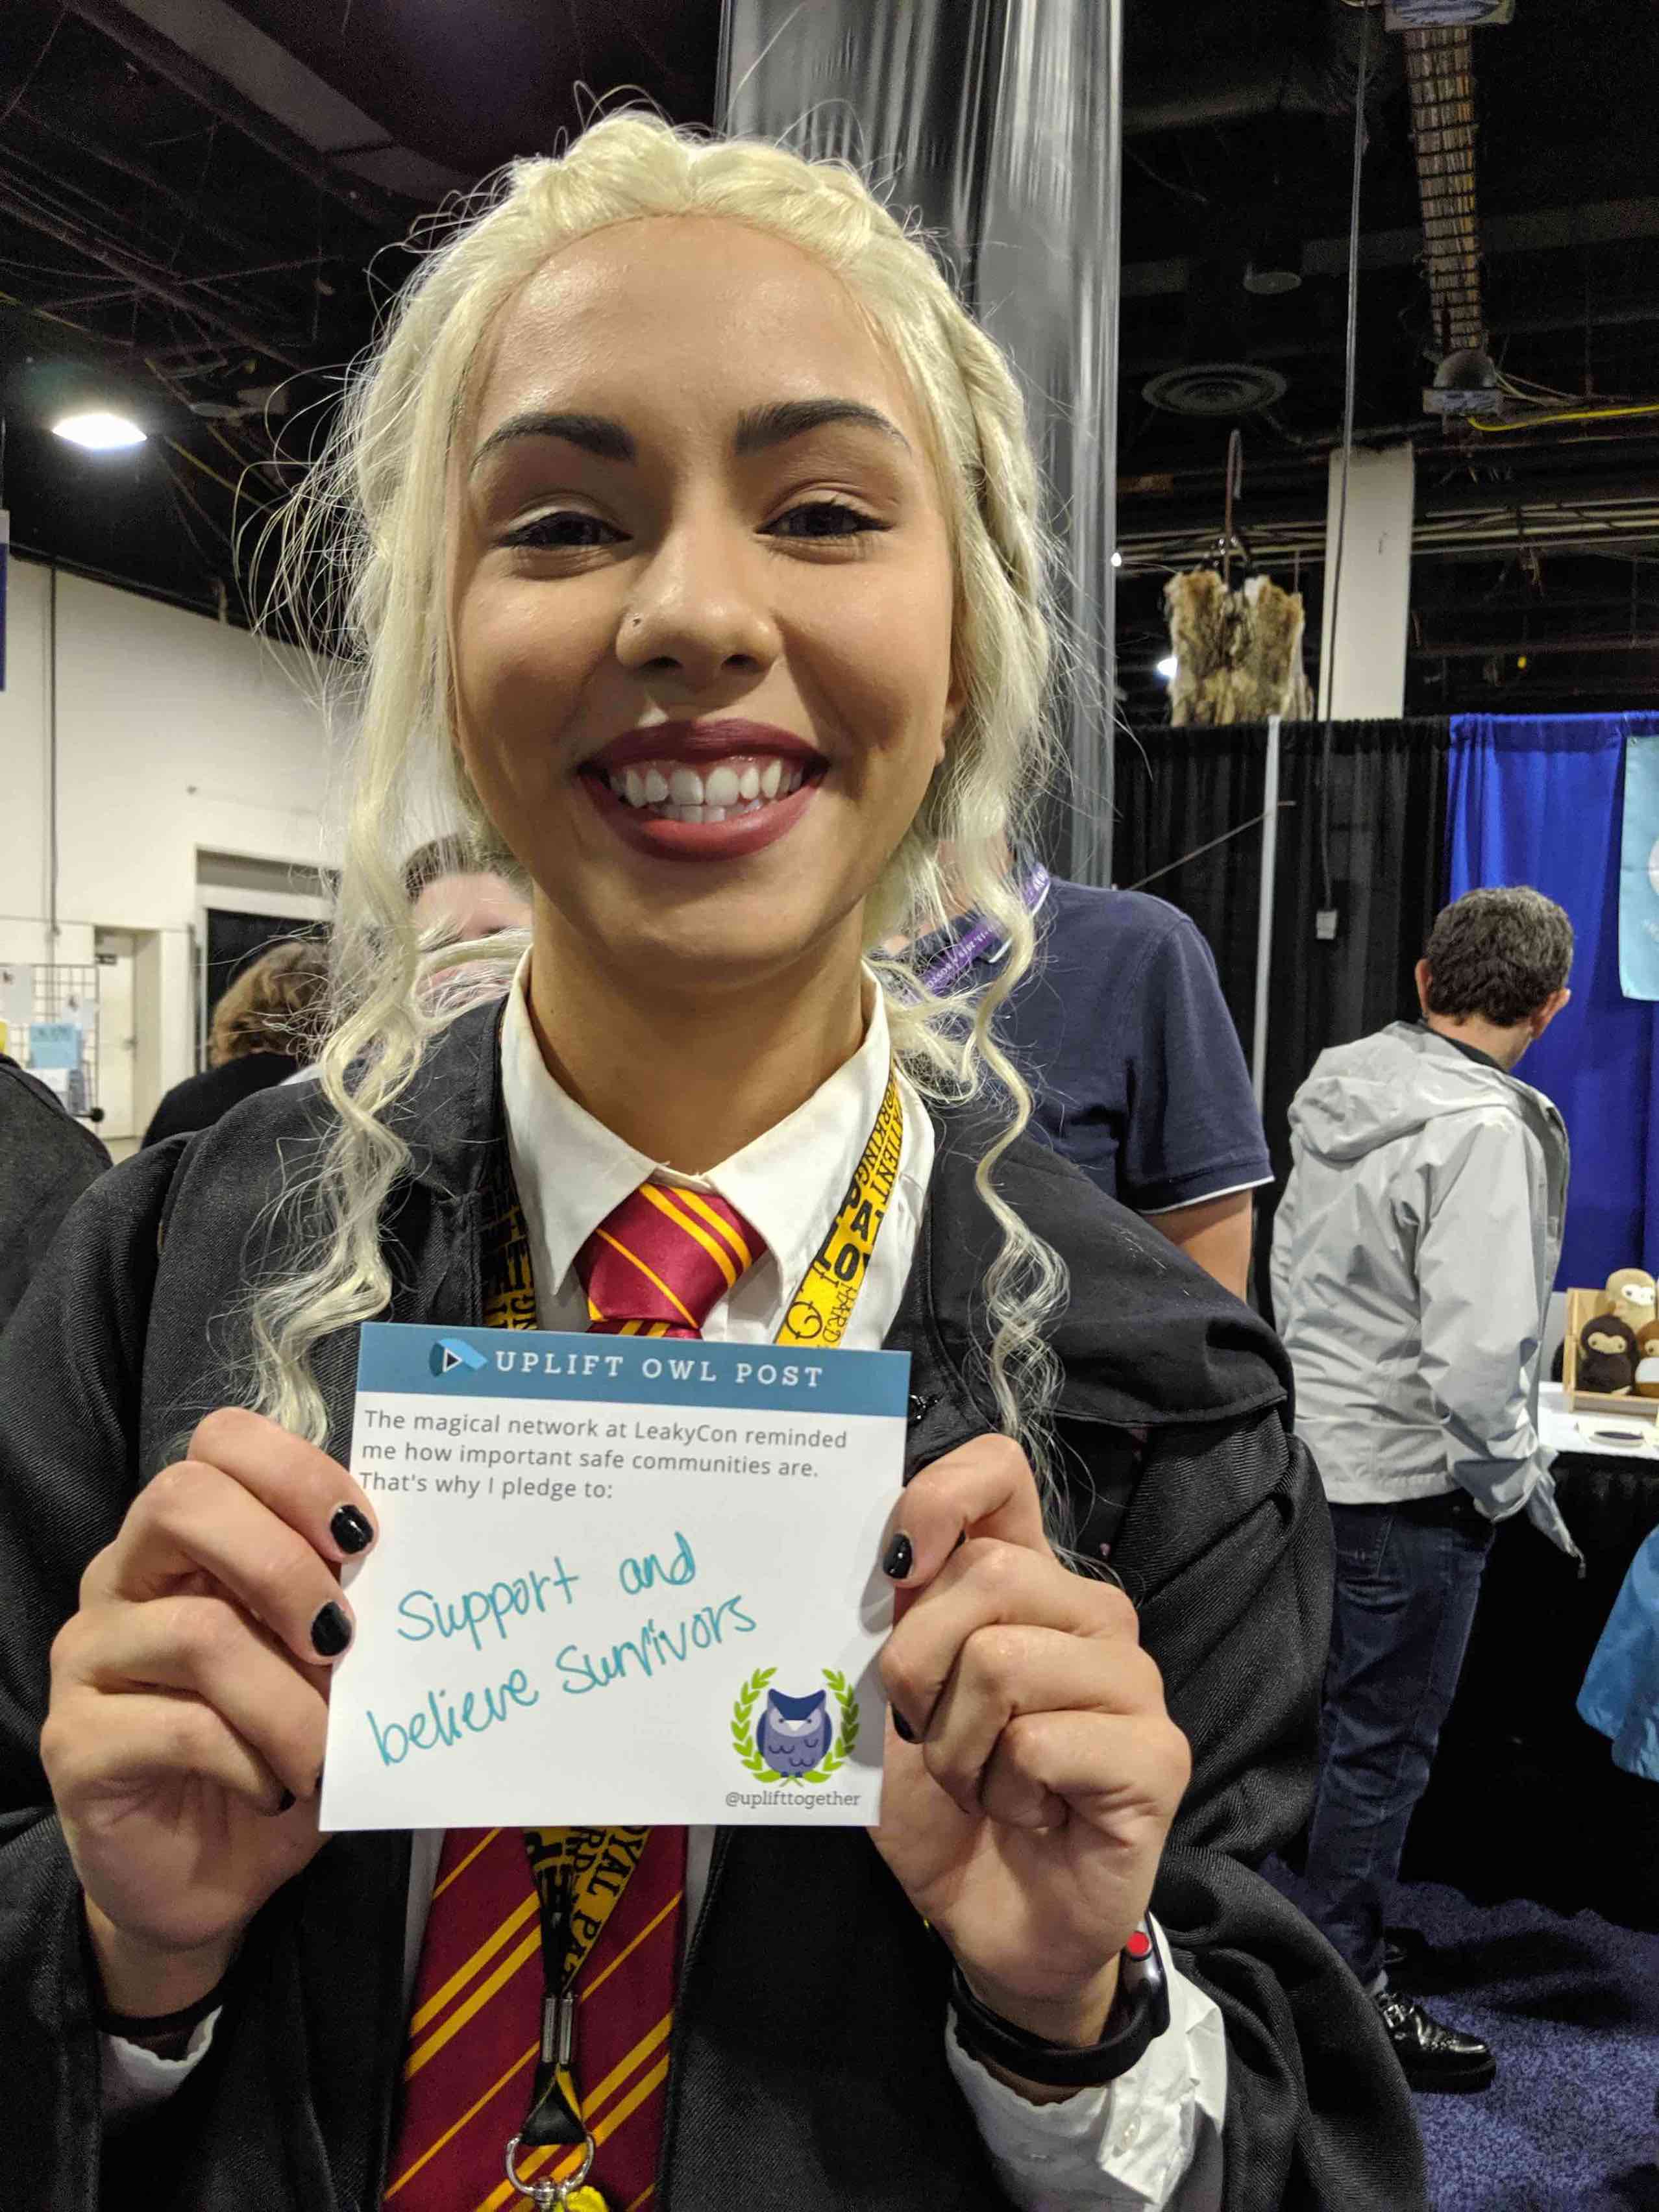 UPLIFT OWL POST
The magical network at LeakyCon reminded
me how important safe communities are.
That's why I pledge to:
Support and
believe survivors
@uplifttogether